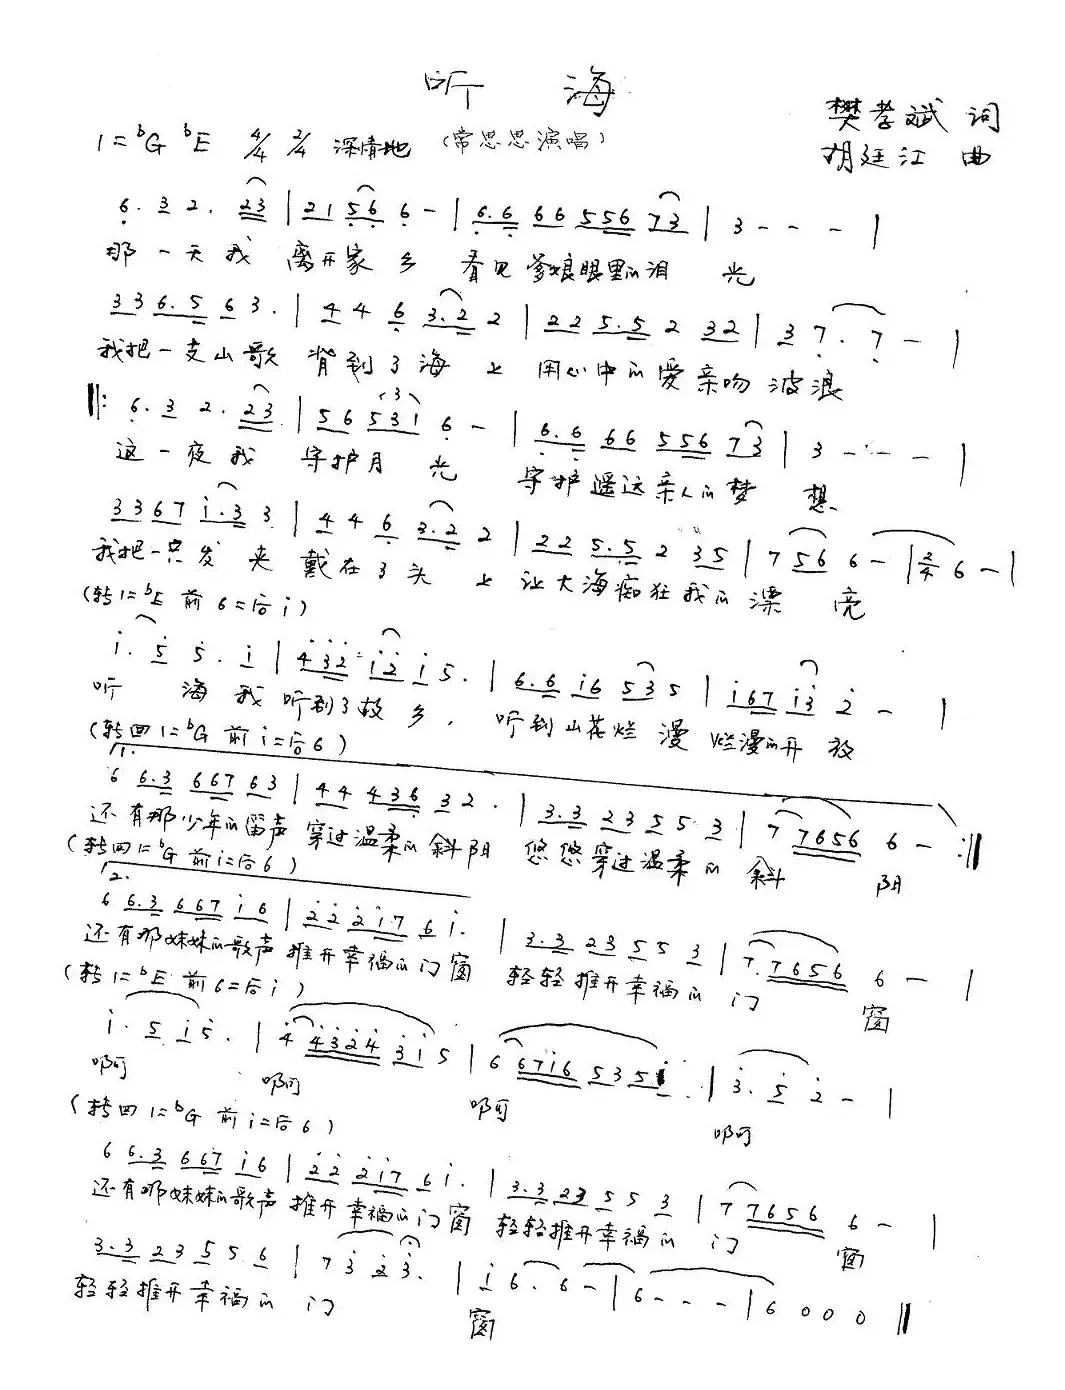 听 海
樊孝斌 词
1=ᵇG ᵇE 4/4 2/4 深情地 (常思思演唱)
胡廷江 曲
6. 3 2. 23 | 21 56 6 - | 6.6 66 556 73 | 3 - - - |
那一天我 离开家乡 看见爹娘眼里的泪 光
336.5 63. | 4 4 6 3.2 2 | 22 5.5 2 32 | 3 7. 7 - |
我把一支山歌 背到了海 上 用心中的爱亲吻波浪
‖: 6. 3 2. 23 | 56 531 6 - | 6.6 66 556 73 | 3 - - - |
(3)
这一夜我 守护月 光 守护遥远亲人的梦 想
3367 i.3 3 | 4 4 6 3.2 2 | 22 5.5 2 35 | 7 56 6 - | 2/4 6 - |
我把一只发 夹 戴在了头 上 让大海痴狂我的漂 亮
(转1=ᵇE 前6=后i)
i. 5 5. i | 432 i2 i5. | 6.6 i6 53 5 | i67 i3 2 - |
听 海我 听到了故乡, 听到山花烂漫 烂漫的开放
(转回1=ᵇG 前i=后6)
1.
6 6.3 667 63 | 44 436 32. | 3.3 23 5 5 3 | 7 7656 6 - :‖
还有那少年的笛声 穿过温柔的斜阳 悠悠穿过温柔的 斜 阳
(转回1=ᵇG 前i=后6)
2.
6 6.3 667 i6 | 22 2i7 6i. | 3.3 23 5 5 3 | 7. 7656 6 - |
还有那妹妹的歌声 推开幸福的门窗 轻轻推开幸福的 门 窗
(转1=ᵇE 前6=后i)
i. 5 i5. | 4 4324 3i 5 | 6 67i6 535i | 3. 5 2 - |
啊 啊 啊 啊
(转回1=ᵇG 前i=后6)
6 6.3 667 i6 | 22 2i7 6i. | 3.3 23 5 5 3 | 7 7656 6 - |
还有那妹妹的歌声 推开幸福的门窗 轻轻推开幸福的 门 窗
3.3 23 5 5 6 | 7 3 2 3. | i 6. 6 - | 6 - - - | 6 0 0 0 ‖
轻轻推开幸福的 门 窗